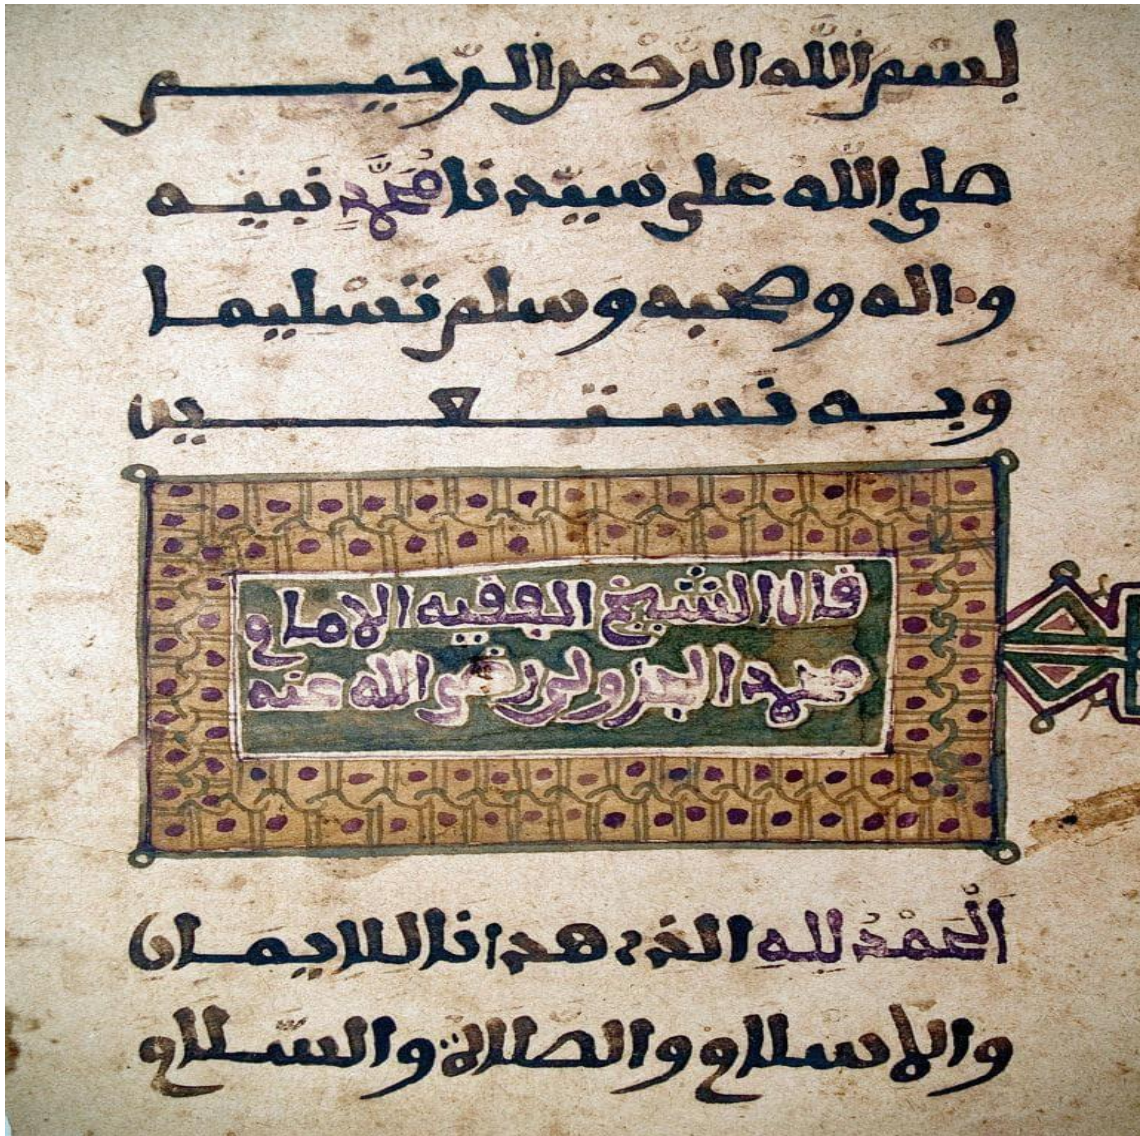 بسم الله الرحمن الرحيم
صلى الله على سيّدنا محمّد نبيّه
وءاله وصحبه وسلم تسليما
وبه نستعين
قال الشيخ الفقيه الإمام
محمد الجزولي رضي الله عنه
الْحَمْدُ لله الذي هدانا للإيمان
والإسلام والصلاة والسلام